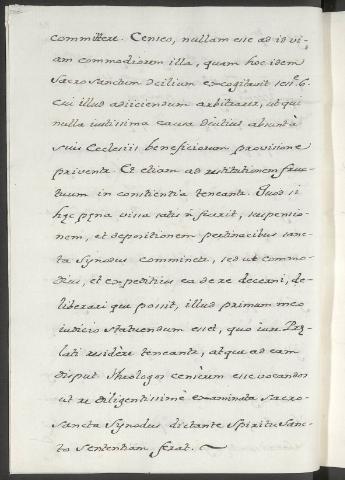 committere. Censeo, nullam esse ad id vi-
am commodiorem illa, quam hoc idem
Sacrosanctum Ɔcilium excogitavit sess.e 6.
cui illud adiiciendum arbitrarer, ut qui
nulla iustissima causa diutius absunt à
suis Ecclesiis beneficiorum provisione
priventur. Et etiam ad restitutionem fruc-
tuum in conscientia teneantr. Quod si
hęc pęna visa satis ñ fuerit, suspensio-
nem, et depositionem pertinacibus sanc-
ta Synodus commineter, sed ut commo-
dius, et expeditius ea de re decerni, de-
liberari que possit, illud primum meo
iudicio statuendum esset, quo iure Prę-
lati residère teneantr, atque ad eam
disput Theologos censerem esse vocandos
ut re diligentissimè examinata Sacro-
sancta Synodus dictante Spiritu Sanc-
to sententiam ferat.